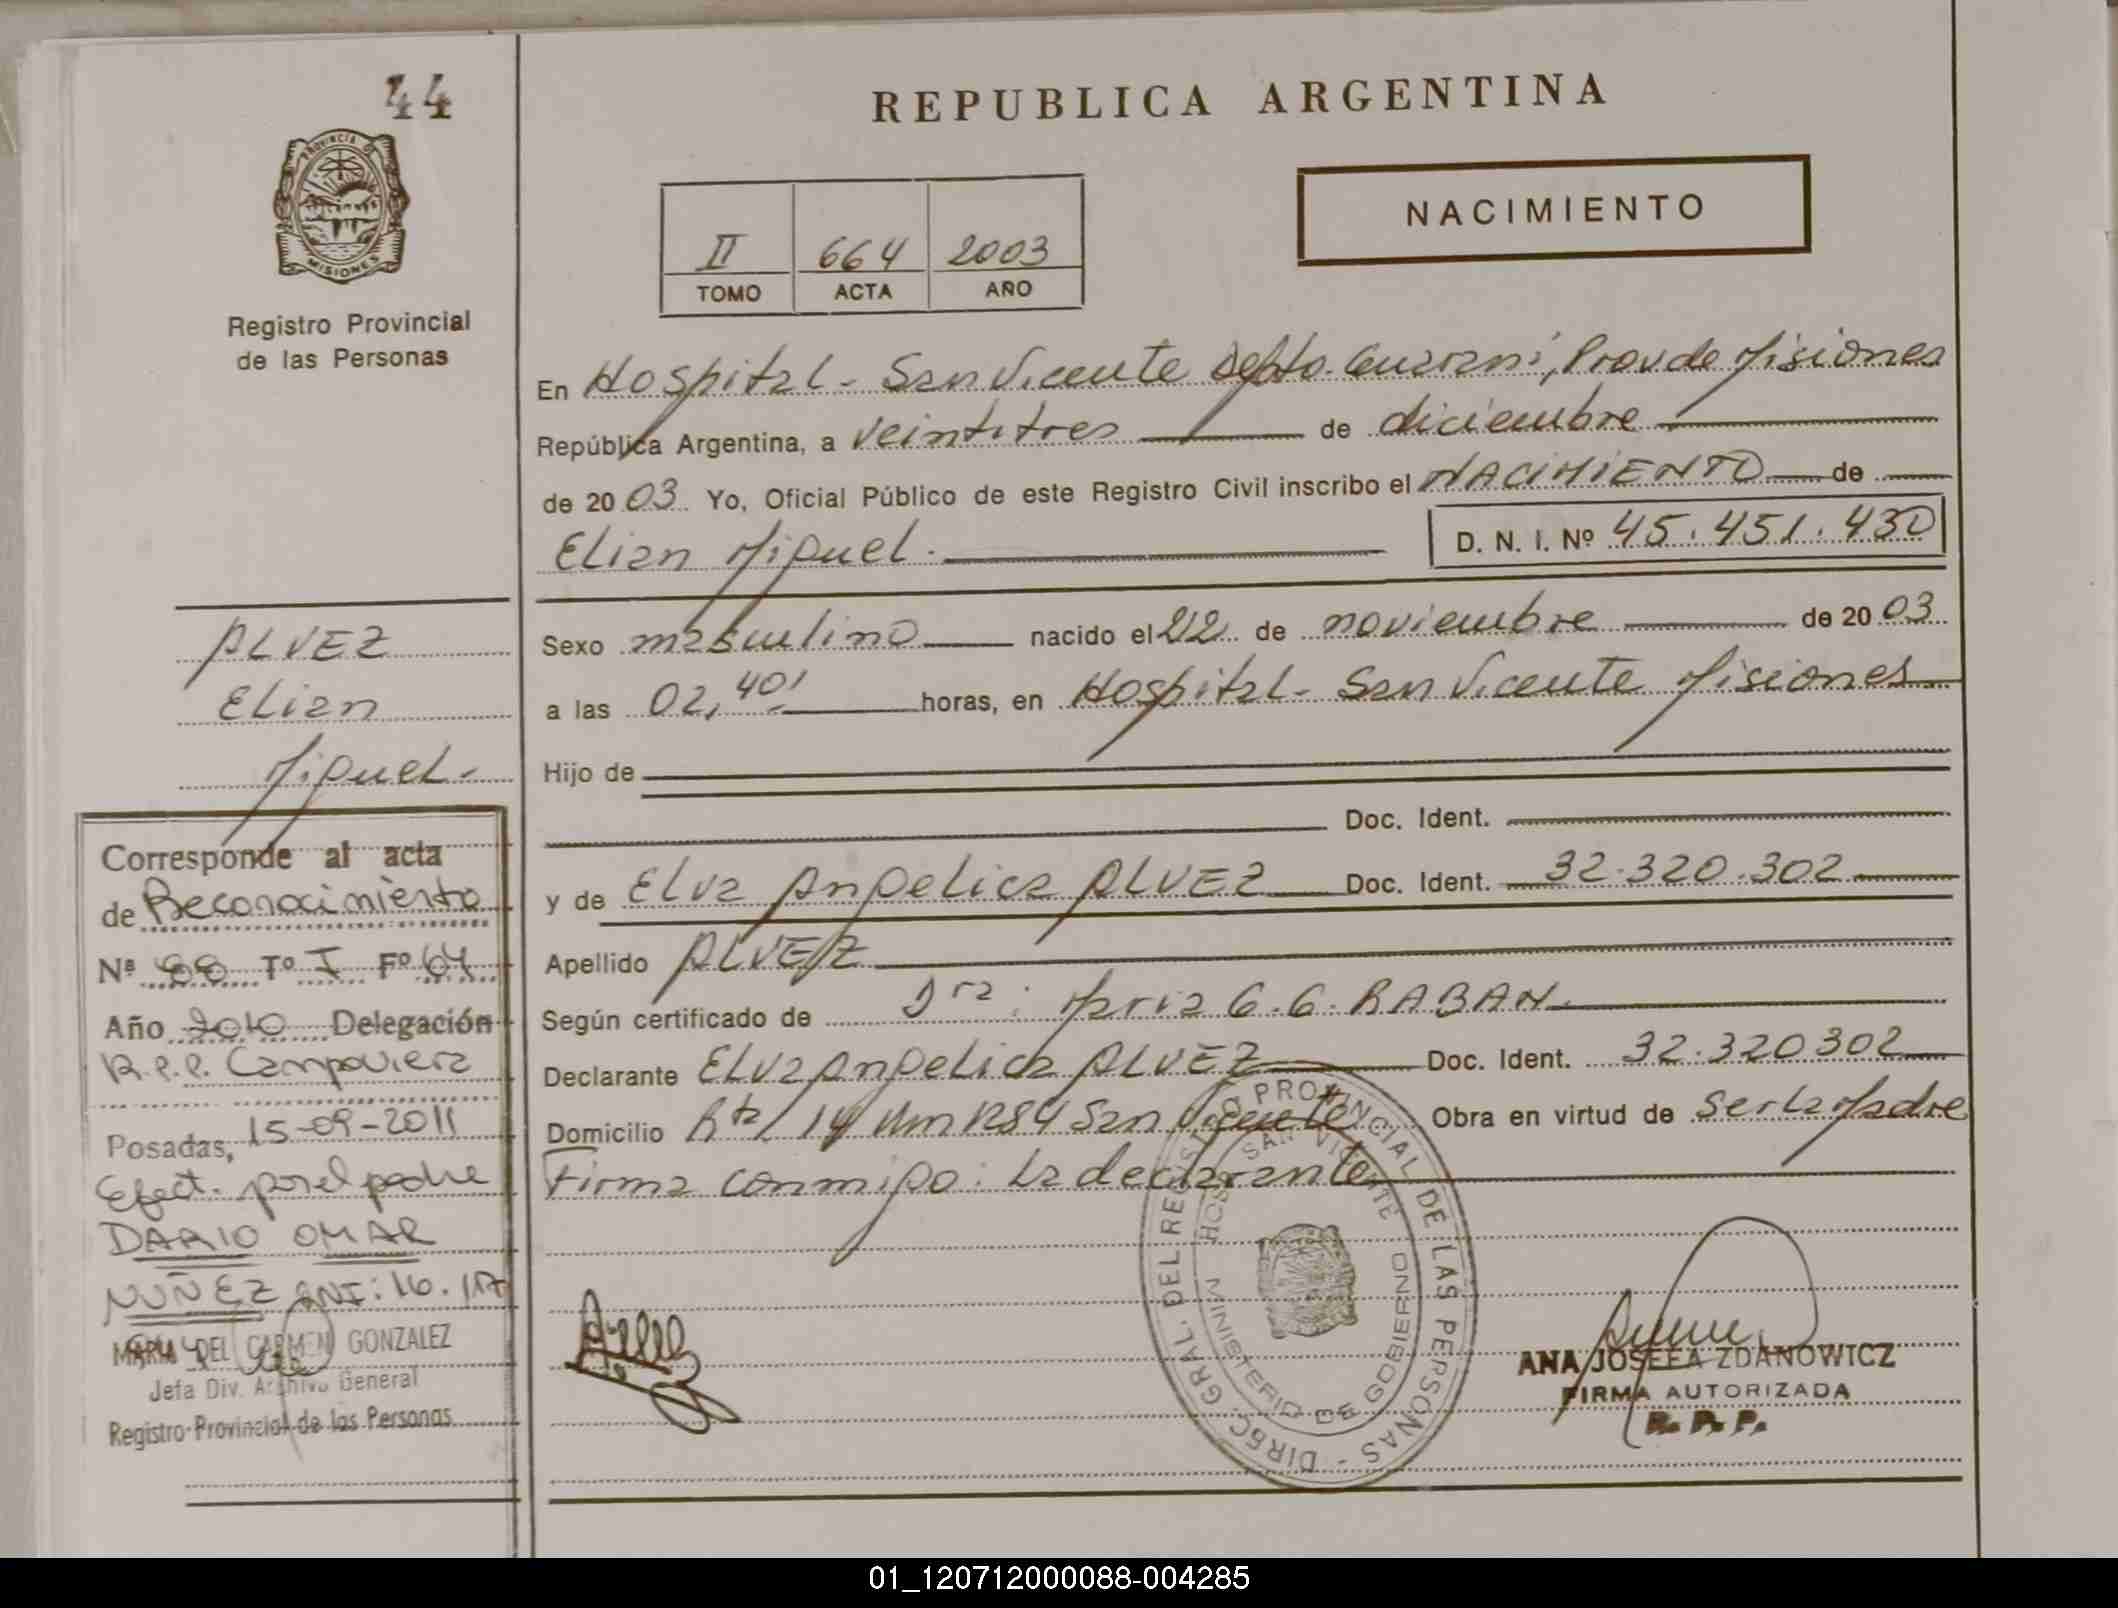 44
PROVINCIA D
MISIONES
Registro Provincial
de las Personas
REPUBLICA ARGENTINA
NACIMIENTO
II 664 2003
TOMO ACTA AÑO
En Hospital - San Vicente Depto. Guarani, Prov de Misiones
República Argentina, a veintitres de diciembre
de 2003. Yo, Oficial Público de este Registro Civil inscribo el NACIMIENTO de
Elian Miguel.
D. N. I. Nº 45.451.430
Sexo masculino nacido el 22 de noviembre de 2003
a las 02,40' horas, en Hospital - San Vicente Misiones
Hijo de
Doc. Ident.
y de Elva Angelica ALVEZ Doc. Ident. 32.320.302
Apellido ALVEZ
Según certificado de Dra: Maria G. G. RABAN
Declarante Elva Angelica ALVEZ Doc. Ident. 32.320302
Domicilio Rta 14 Km 1284 San Vicente Obra en virtud de Ser la Madre
Firma conmigo: La declarante
ALVEZ
Elian
Miguel.
Corresponde al acta
de Reconocimiento
Nº 88 Tº I Fº 64
Año 2010 Delegación
R.P.P. Campoviera
Posadas, 15-09-2011
Efect. por el padre
DARIO OMAR
NUÑEZ DNI: 16.
MARIA DEL CARMEN GONZALEZ
Jefa Div. Archivo General
Registro Provincial de las Personas
DIREC. GRAL. DEL REGISTRO PROVINCIAL DE LAS PERSONAS
HOSP. SAN VICENTE
MINISTERIO DE GOBIERNO
ANA JOSEFA ZDANOWICZ
FIRMA AUTORIZADA
R. P. P.
01_120712000088-004285